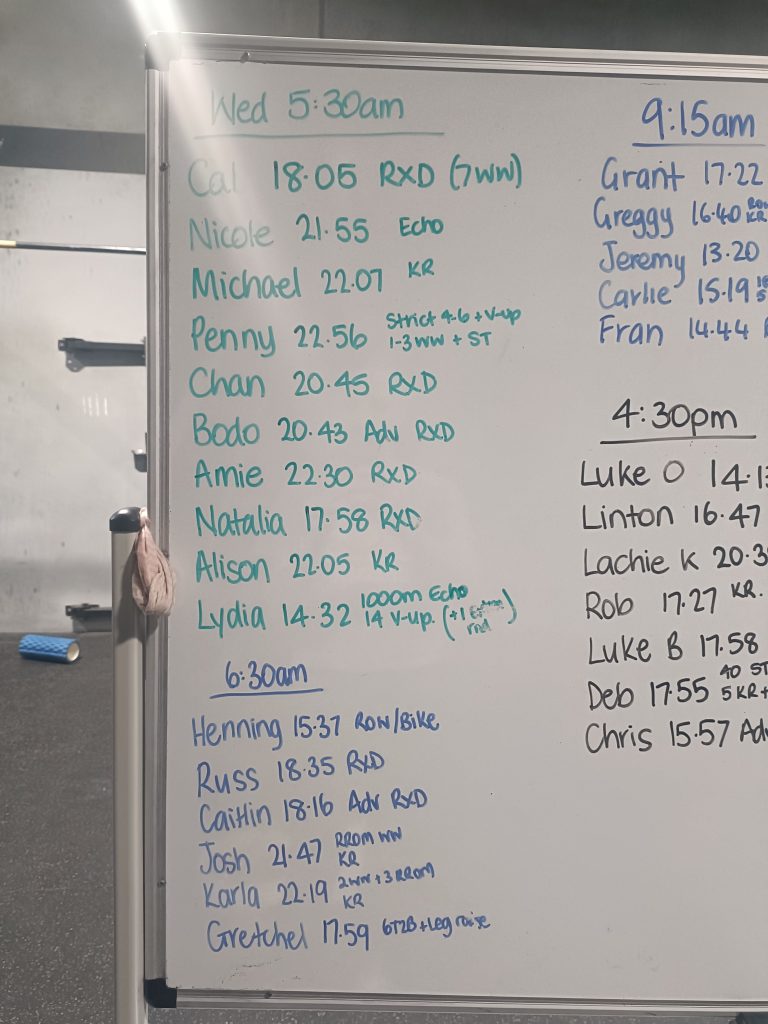 Wed 5:30am
Cal 18.05 RXD (7WW)
Nicole 21.55 Echo
Michael 22.07 KR
Penny 22.56 Strict 4-6 + V-up
1-3 WW + ST
Chan 20.45 RXD
Bodo 20.43 Adv RXD
Amie 22.30 RXD
Natalia 17.58 RXD
Alison 22.05 KR
Lydia 14.32 1000m Echo
14 V-up. (+1 rnd)
6:30am
Henning 15.37 ROW/Bike
Russ 18.35 RXD
Caitlin 18.16 Adv RXD
Josh 21.47 RROM WW
KR
Karla 22.19 2WW + 3 RROM
KR
Gretchel 17.59 6T2B + Leg raise
9:15am
Grant 17.22
Greggy 16.40 Row
KR
Jeremy 13.20
Carlie 15.19
Fran 14.44
4:30pm
Luke O 14.13
Linton 16.47
Lachie K 20.3
Rob 17.27 KR.
Luke B 17.58
Deb 17.55 40 ST
5 KR +
Chris 15.57 Adv